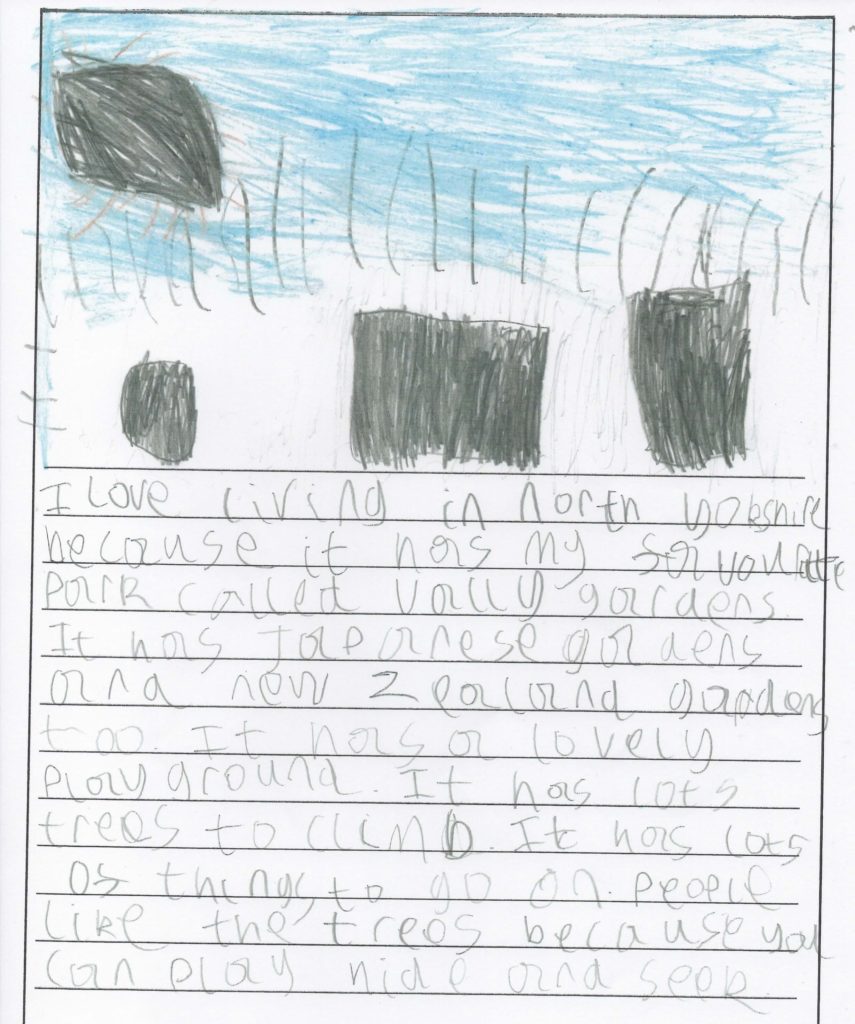 I Love living in north yorkshire
because it has my favourite
park called vally gardens.
It has Japanese gardens
and new Zealand gardens
too. It has a lovely
playground. It has lots
trees to climb. It has lots
of things to go on. people
like the trees because you
can play hide and seek